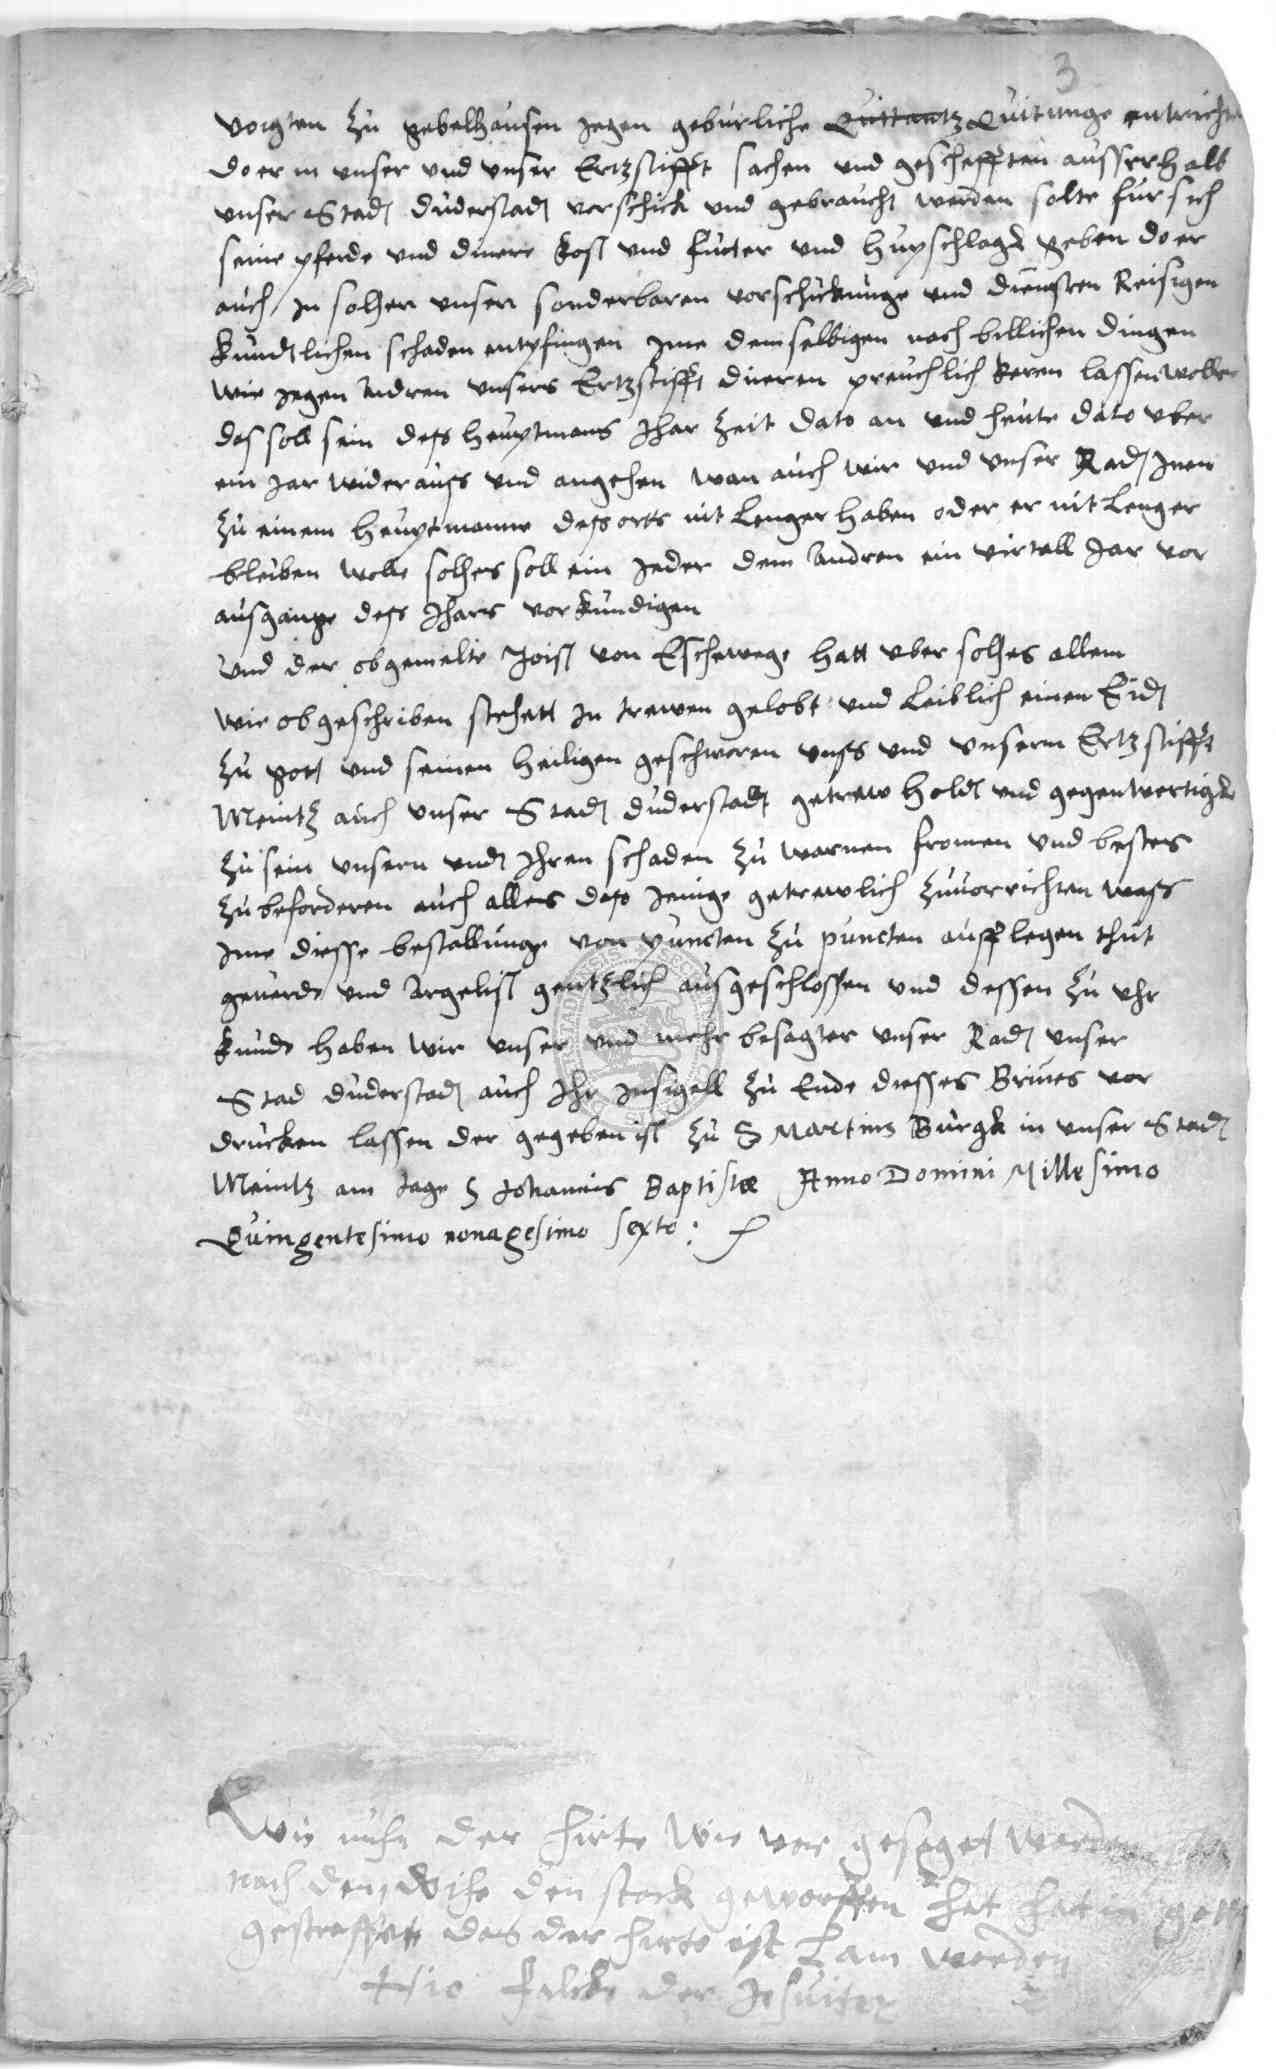 3
Vogten zu gebelhausen jegen geburliche Quittantz Quitunge entrichten
do er in unser und unser Ertzstifft sachen und geschefften ausserhalb
unser Stadt duderstadt vorschick und gebraucht werden solte fur sich
seine pferde und diener kost und futter und huffschlagk geben do er
auch in solhen unsern sonderbaren vorschickunge und diensten Reisigen
kundtlichen schaden entpfingen ime demselbigen nach billichen dingen
wie jegen andren unsers Ertzstifft dieneren preuchlich keren lassen wollen
des soll sein dess heuptmans Jhar Zeit dato an und heute dato uber
ein jar widerauss und angehen wan auch wir und unser Radt jnen
zu einem heuptmanne dess orts nit lenger haben oder er nit lenger
bleiben wolle solhes soll ein jeder dem andren ein virtell Jar vor
ausgange dess Jhars vorkundigen
Und der obgemelte Joist von Eschewege hatt uber solhes allem
wie obgeschriben stehett in trewen gelobt und leiblich einen Eidt
zu gott und seinen heiligen geschworen unss und unserm Ertzstifft
Meintz auch unser Stadt duderstadt getrew holdt und gegenwertigk
zu sein unsern undt Jhren schaden zu warnen fromen und bestes
zu beforderen auch alles dess jenige getrewlich zuvorrichten wass
ime diesse bestallunge von puncten zu puncten aufflegen thut
geuerde und Argelist gentzlich ausgeschlossen und dessen zu uhr
kunde haben wir unser und mehr besagter unser Radt unser
Stad duderstadt auch Jhr jnsigell zu Ende diesses Brives vor
drucken lassen der gegeben ist zu S Martins Burgk in unser Stadt
Meintz am tage S Johannis Baptistæ Anno Domini Millesimo
Quingentesimo nonagesimo sexto:
Wie nuhn der hirte wie vor gesaget worden
nach den den stock geworffen hat hat in gott
gestraffet das der hirte ist lam worden
der Jesuiter